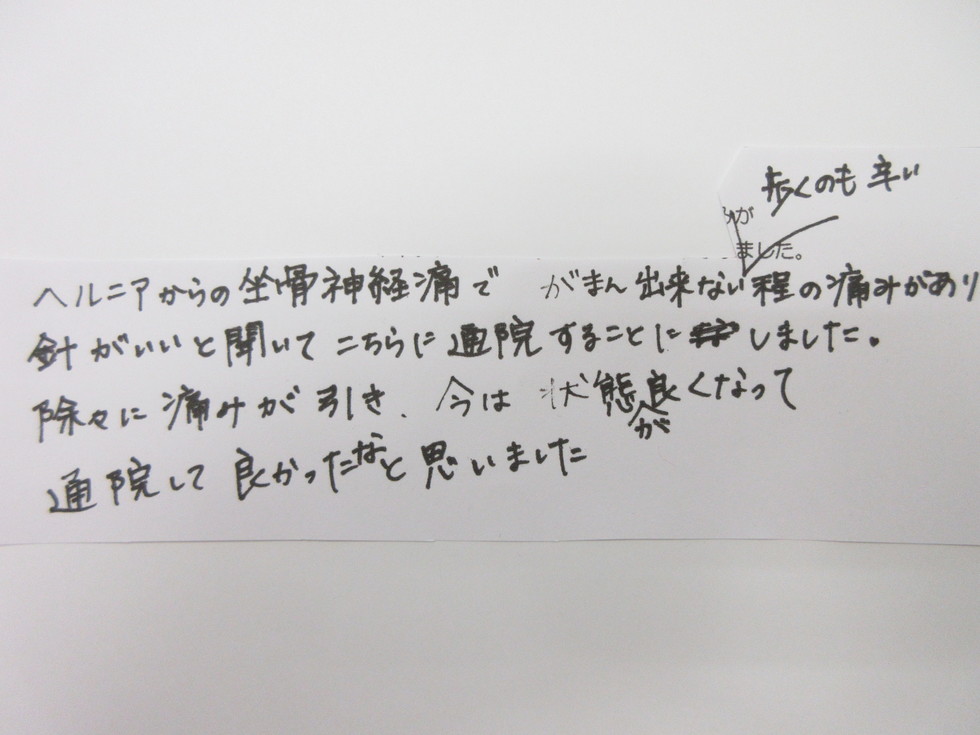 歩くのも辛い
が
ました。
ヘルニアからの坐骨神経痛で がまん出来ない程の痛みがあり
針がいいと聞いてこちらに通院することにしました。
除々に痛みが引き、今は 状態良くなって
が
通院して良かったなと思いました